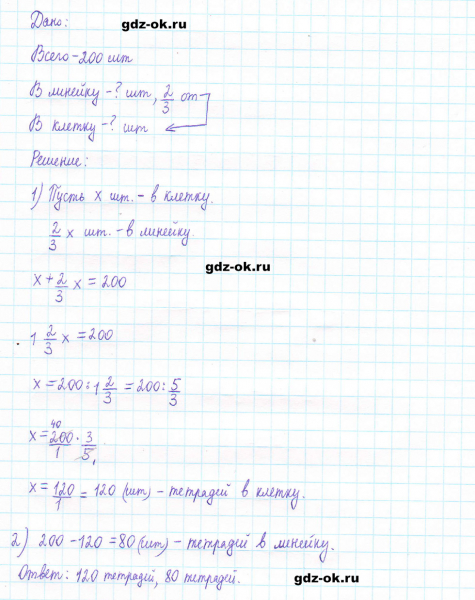 Дано:
gdz-ok.ru
Всего - 200 шт
В линейку - ? шт, 2/3 от
В клетку - ? шт
Решение:
1) Пусть x шт. - в клетку.
2/3 x шт. - в линейку.
gdz-ok.ru
x + 2/3 x = 200
1 2/3 x = 200
x = 200 : 1 2/3 = 200 : 5/3
x = 200/1 · 3/5 40 1
x = 120/1 = 120 (шт) - тетрадей в клетку.
2) 200 - 120 = 80 (шт) - тетрадей в линейку.
Ответ: 120 тетрадей, 80 тетрадей.
gdz-ok.ru